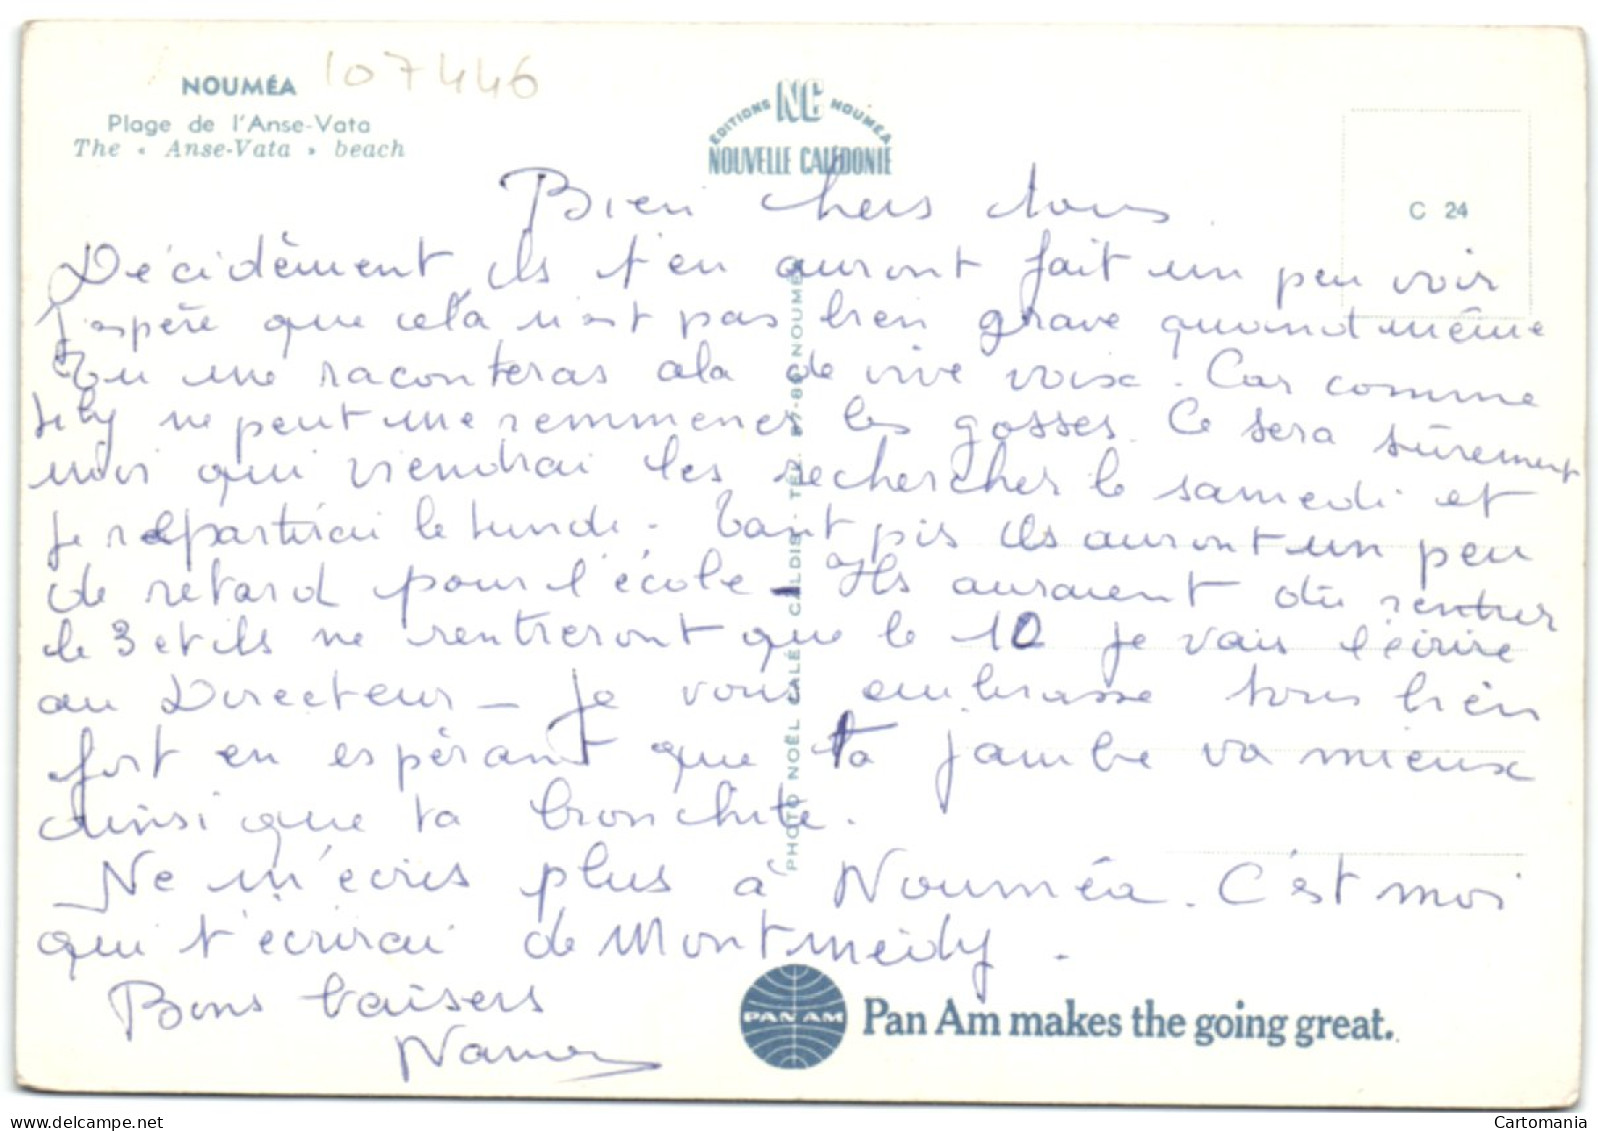 NOUMÉA
107446
Plage de l'Anse-Vata
The « Anse-Vata » beach
EDITIONS NC NOUMÉA
NOUVELLE CALÉDONIE
C 24
Bien chers tous
Décidément ils t'en auront fait un peu voir
J'espère que cela n'est pas bien grave quand même
Tu me raconteras cela de vive voix. Car comme
ne peut me remmener les gosses. Ce sera sûrement
moi qui viendrai les rechercher le samedi et
je repartirai le lundi. Tant pis ils auront un peu
de retard pour l'école. Ils auraient dû rentrer
le 3 et ils ne rentreront que le 10 je vais l'écrire
au Directeur - Je vous embrasse tous bien
fort en espérant que ta jambe va mieux
ainsi que ta bronchite.
Ne m'écris plus à Nouméa. C'est moi
qui t'écrirai de Montmédy.
Bons baisers
PHOTO NOËL CALÉ CALDIS - TÉL. 27-86 NOUMÉA
PAN AM
Pan Am makes the going great.
delcampe.net
Cartomania